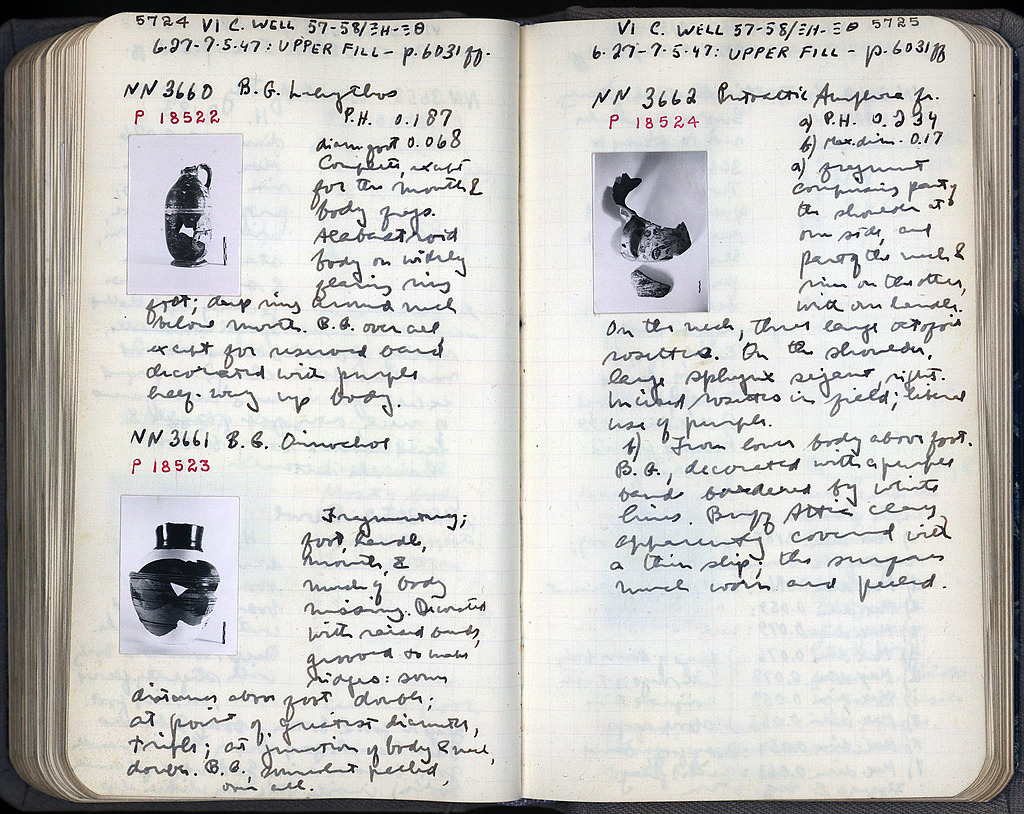 5724 VI C. WELL 57-58/ΞH-ΞΘ
6.27-7.5.47: UPPER FILL - p.6031ff.
NN 3660 B.G. Lekythos
P 18522 P.H. 0.187
diam foot 0.068
Complete, except
for the mouth &
body frgs.
Alabastroid
body on widely
flaring ring
foot; deep ring around neck
below mouth. B.G. over all
except for reserved band
decorated with purple
half-way up body.
NN 3661 B.G. Oinochoe
P 18523
Fragmentary;
foot, handle,
mouth, &
much of body
missing. Decorated
with raised bands,
grooved to make
ridges: some
distance above foot, double;
at point of greatest diameter,
triple; at junction of body & neck,
double. B.G., somewhat peeled,
over all.
VI C. WELL 57-58/ΞH-ΞΘ 5725
6.27-7.5.47: UPPER FILL - p.6031ff
NN 3662 Protoattic Amphora fr.
P 18524 a) P.H. 0.234
b) Max.dim. 0.17
a) fragment
comprising part of
the shoulder at
one side, and
part of the neck &
rim on the other,
with one handle.
On the neck, three large octofoil
rosettes. On the shoulder,
large sphynx sejant, right.
Incised rosettes in field; liberal
use of purple.
b) From lower body above foot.
B.G., decorated with a purple
band bordered by white
lines. Buff Attic clay,
apparently covered with
a thin slip; the surface
much worn and peeled.